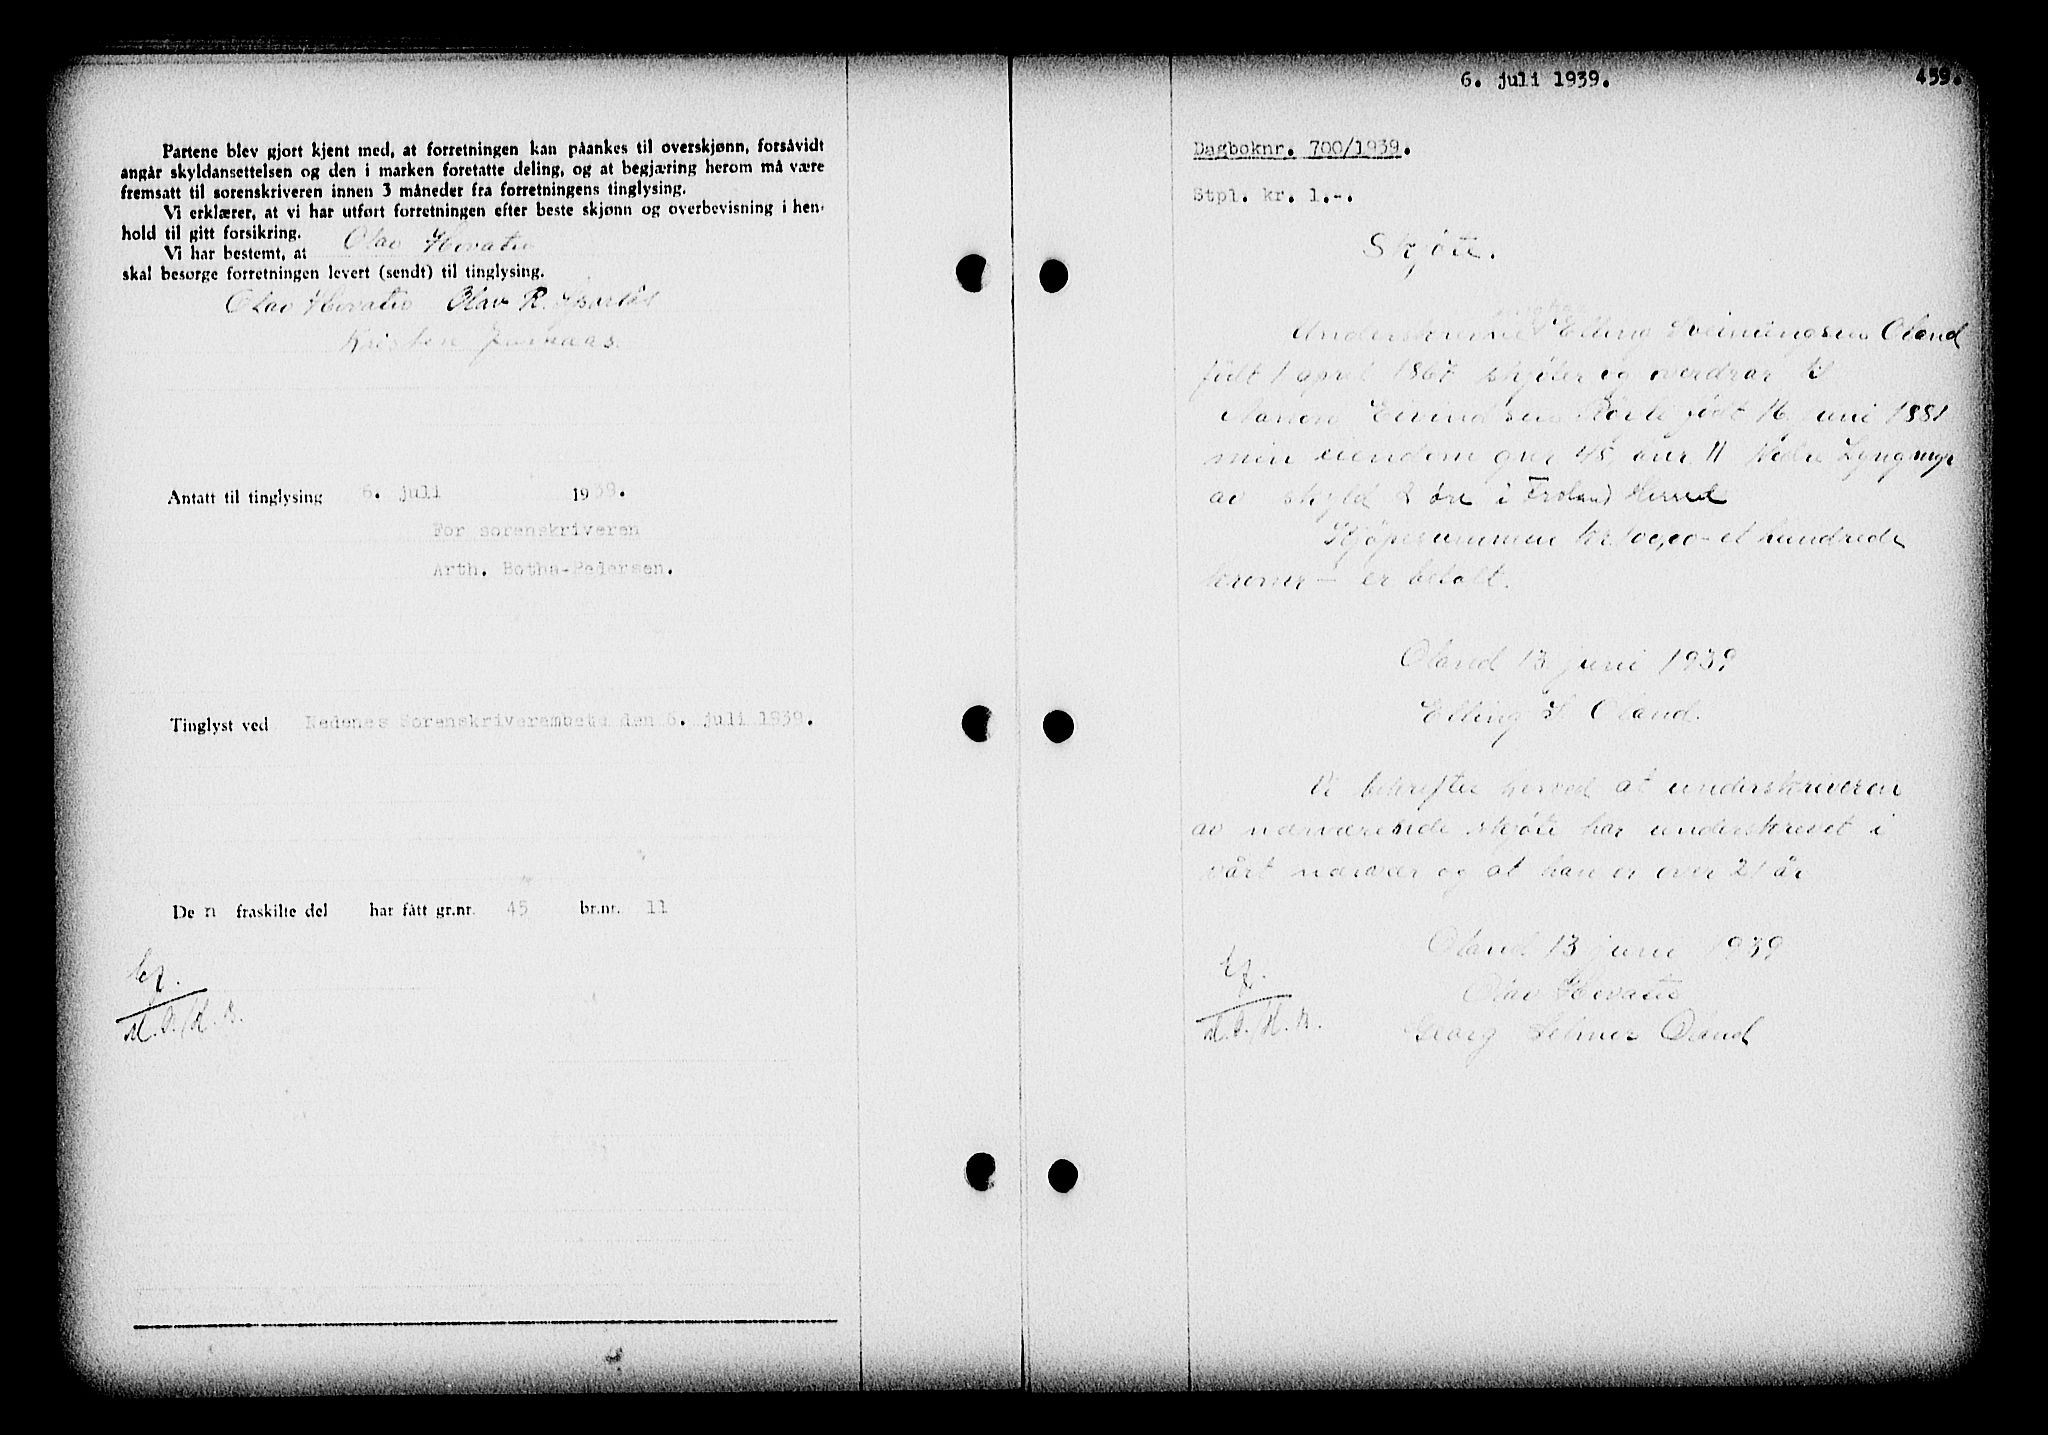 Partene blev gjort kjent med, at forretningen kan påankes til overskjønn, forsåvidt
angår skyldansettelsen og den i marken foretatte deling, og at begjæring herom må være
fremsatt til sorenskriveren innen 3 måneder fra forretningens tinglysing.
Vi erklærer, at vi har utført forretningen efter beste skjønn og overbevisning i hen-
hold til gitt forsikring.
Vi har bestemt, at Olav Hovatn
skal besørge forretningen levert (sendt) til tinglysing.
Olav Hovatn Olav R.
Kristen
Antatt til tinglysing 6. juli 1939.
For sorenskriveren
Arth. Botha-Pedersen.
Tinglyst ved Nedenes Sorenskriverembete den 6. juli 1939.
De n fraskilte del har fått gr.nr. 45 br.nr. 11
6. juli 1939.
459.
Dagboknr. 700/1939.
Stpl. kr. 1.-.
Skjøte.
Elling Oland
født 1 april 1867 skjøter og overdrar til
Eivindsen født 16 juni 1881
min eiendom gnr 45, bnr 11 Lyngmyr
av skyld 2 øre i Froland Herred
Kjøpesummen kr 100,00 - et hundrede
kroner - er betalt.
Oland 13 juni 1939
Elling S. Oland.
Vi bekrefter herved at underskriveren
av nærværende skjøte har underskrevet i
vårt nærvær og at han er over 21 år
Oland 13 juni 1939
Olav Hovatn
Georg Selmer Oland